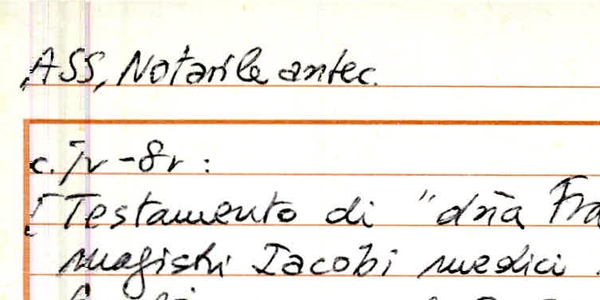 ASS, Notarile antec.
c. 7v - 8r :
[Testamento di "dña Fra
magistri Iacobi medici